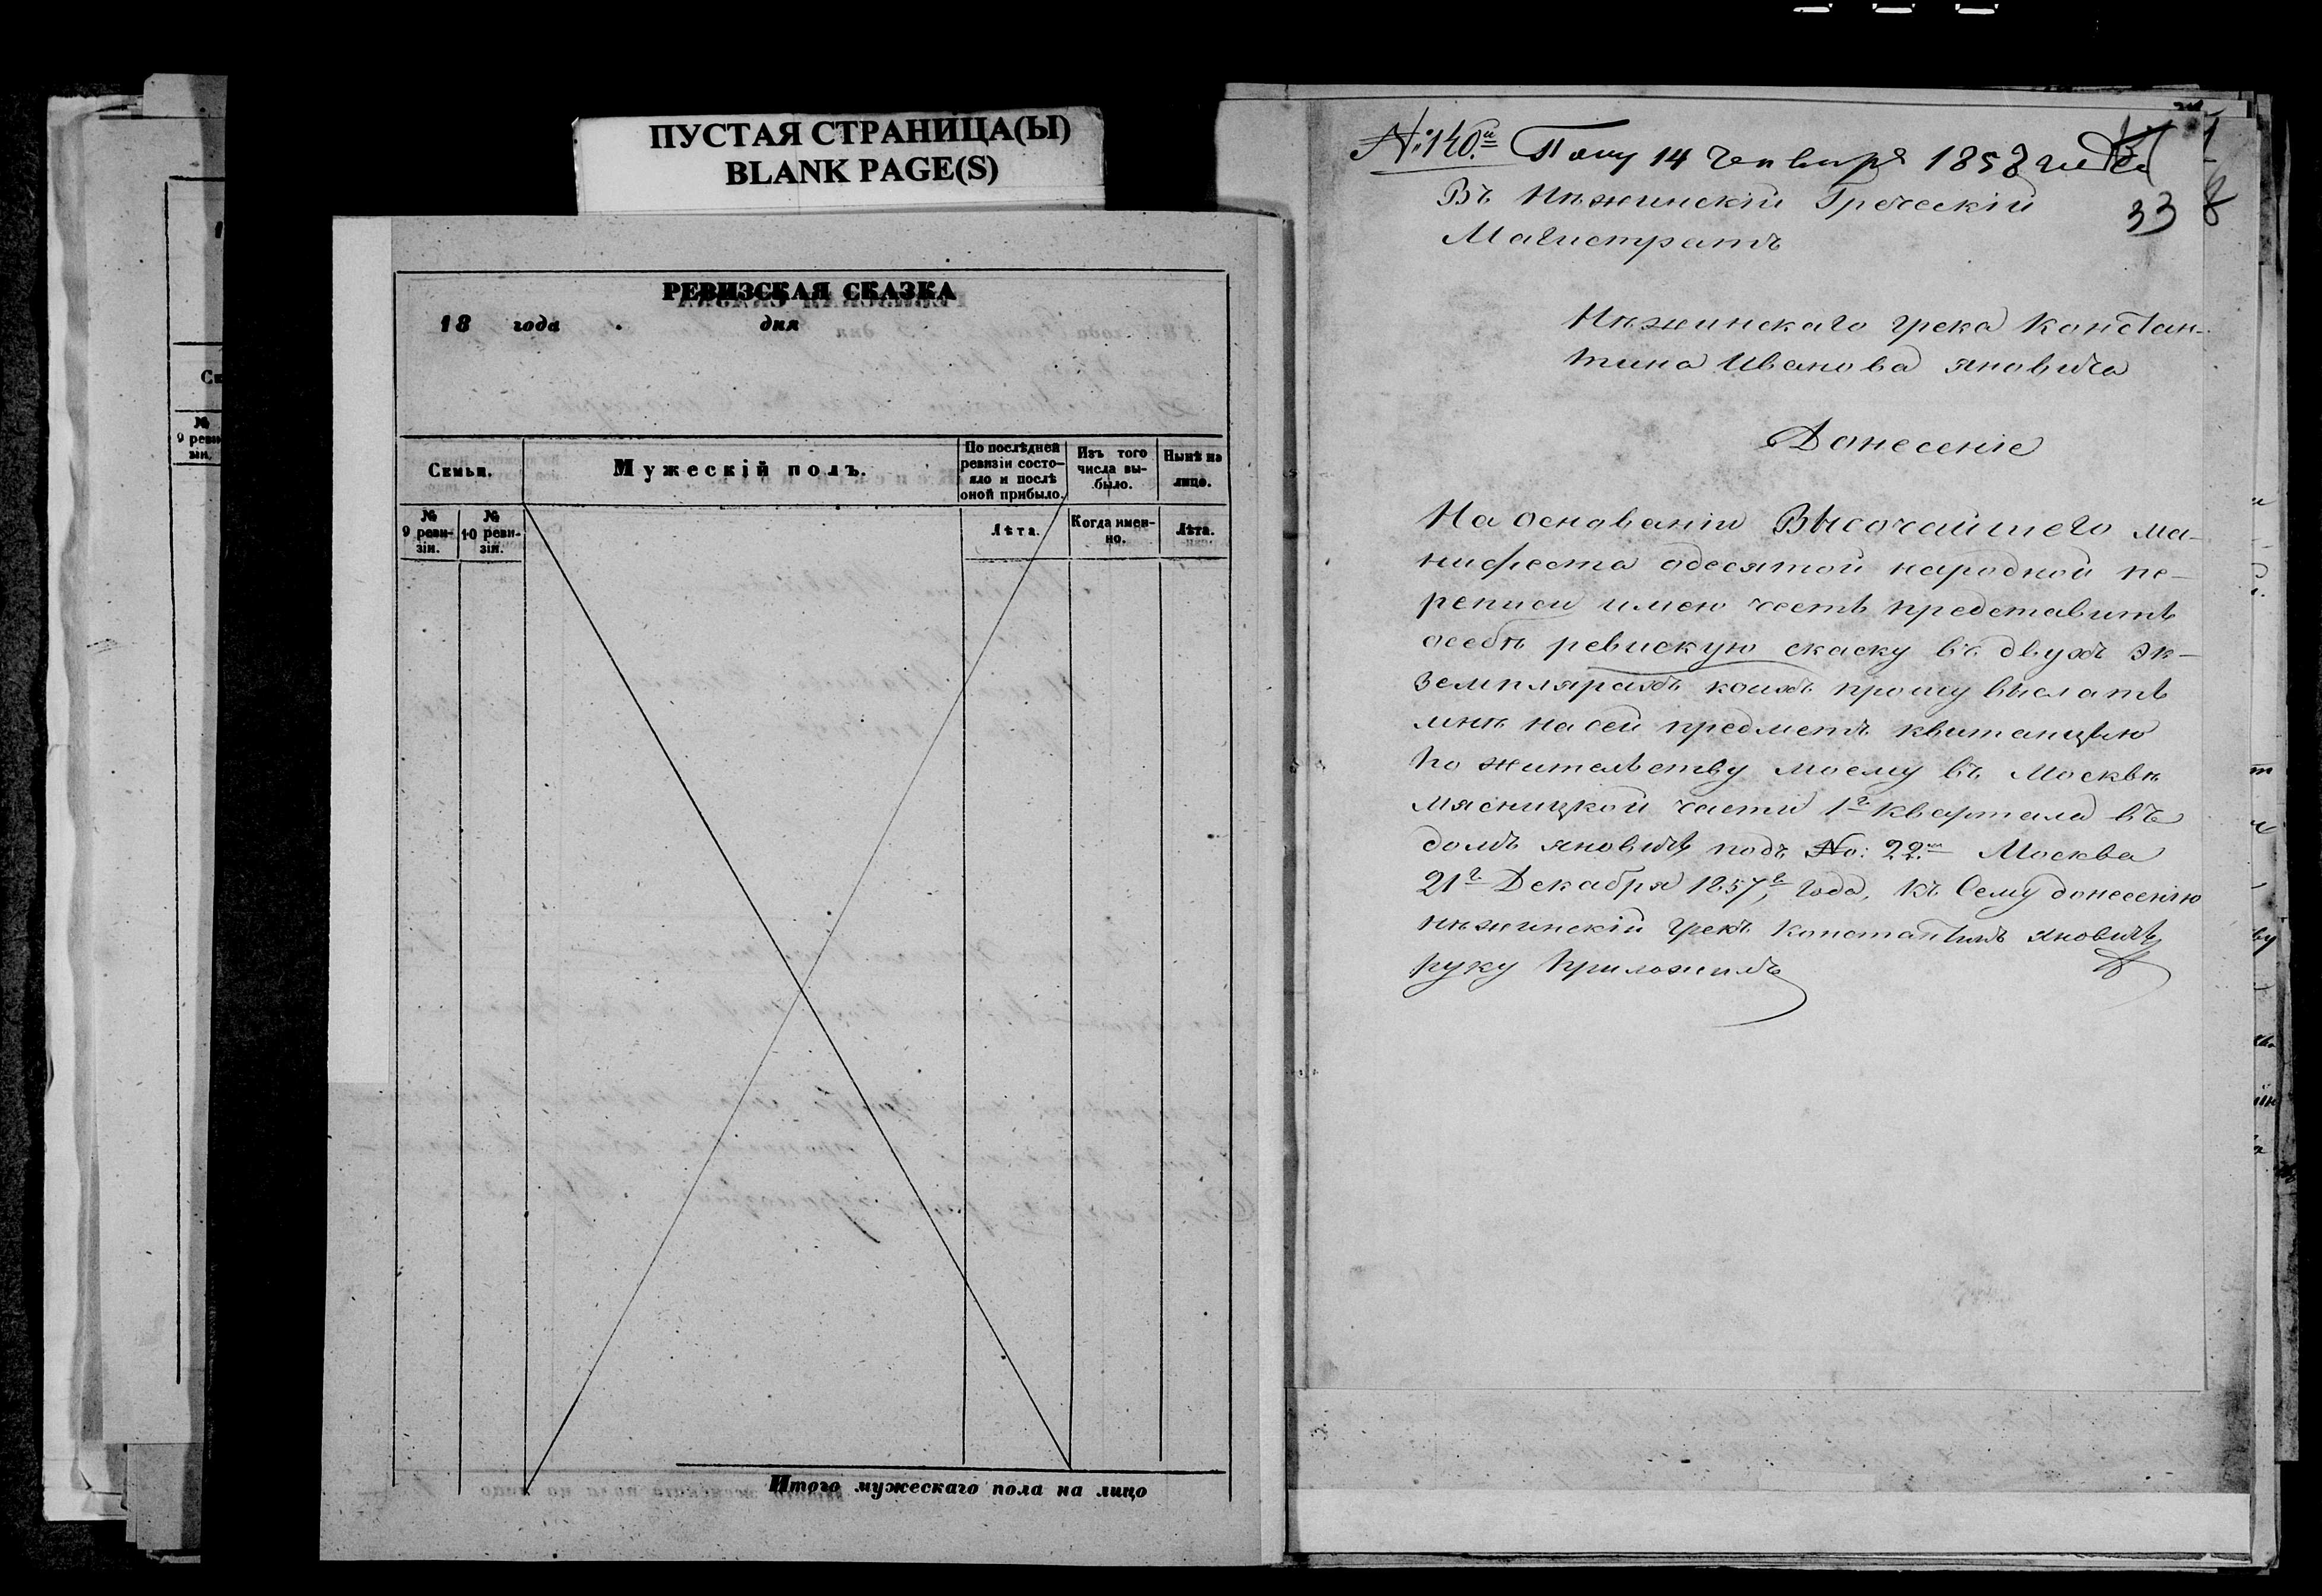 ПУСТАЯ СТРАНИЦА(Ы)
BLANK PAGE(S)
РЕВИЗСКАЯ СКАЗКА
18 года . дня
Семьи.
Мужескій полъ.
По послѣдней
ревизіи состо-
яло и послѣ
оной прибыло.
Изъ того
числа вы-
было.
Нынѣ на
лице.
№
9 реви-
зіи.
№
10 реви-
зіи.
Лѣта.
Когда имен-
но.
Лѣта.
Итого мужескаго пола на лицо
№
9 реви
зіи.
№ 140.й Полу 14 Генваря 1858 года
33
Въ Нѣжинскій Греческій
Магистратъ
Нѣжинскаго грека Констан-
тина Иванова Яновича
Донесеніе
На основаніи Высочайшего ма-
нифеста одесятой народной пе-
реписи имею честь представить
особѣ ревискую скаску въ двухъ эк-
земплярахъ коихъ прошу выслать
мнѣ на сей предметъ квитанцыю
по жительству моему въ Москвѣ
Мясницкой части 1г квартала въ
домъ Яновичъ подъ No: 22.м Москва
21г Декабря 1857г года, къ сему донесенію
нѣжинскій грекъ Константинъ Яновичъ
руку приложилъ